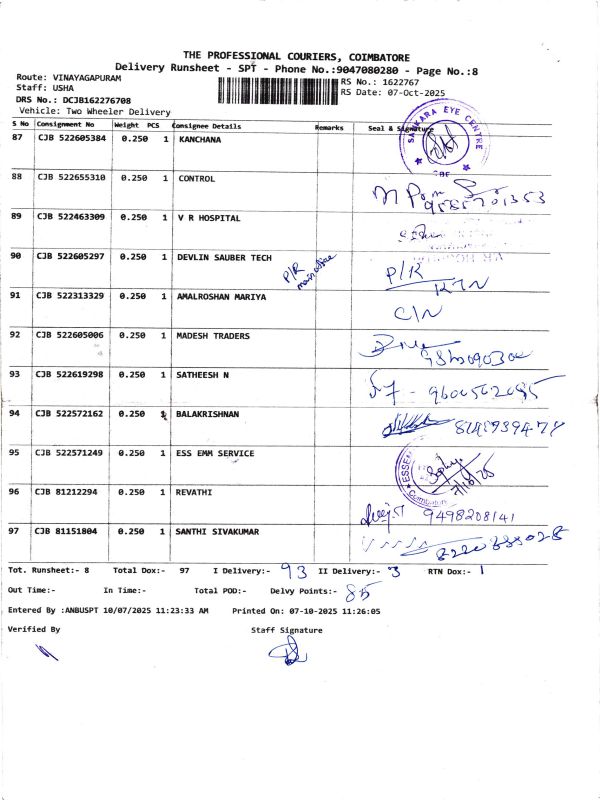 THE PROFESSIONAL COURIERS, COIMBATORE
Delivery Runsheet - SPT - Phone No.:9047080280 - Page No.:8
Route: VINAYAGAPURAM
RS No.: 1622767
Staff: USHA
RS Date: 07-Oct-2025
DRS No.: DCJB162276708
Vehicle: Two Wheeler Delivery
S No Consignment No Weight PCS Consignee Details Remarks Seal & Signature
87 CJB 522605384 0.250 1 KANCHANA
SANKARA EYE CENTRE
CBE
88 CJB 522655310 0.250 1 CONTROL
89 CJB 522463309 0.250 1 V R HOSPITAL
90 CJB 522605297 0.250 1 DEVLIN SAUBER TECH P/R main office P/R
91 CJB 522313329 0.250 1 AMALROSHAN MARIYA C/N
92 CJB 522605006 0.250 1 MADESH TRADERS
93 CJB 522619298 0.250 1 SATHEESH N
94 CJB 522572162 0.250 1 BALAKRISHNAN
95 CJB 522571249 0.250 1 ESS EMM SERVICE
7/10/25
96 CJB 81212294 0.250 1 REVATHI 9498208141
97 CJB 81151804 0.250 1 SANTHI SIVAKUMAR
Tot. Runsheet:- 8 Total Dox:- 97 I Delivery:- 93 II Delivery:- 3 RTN Dox:- 1
Out Time:- In Time:- Total POD:- Delvy Points:- 85
Entered By :ANBUSPT 10/07/2025 11:23:33 AM Printed On: 07-10-2025 11:26:05
Verified By Staff Signature